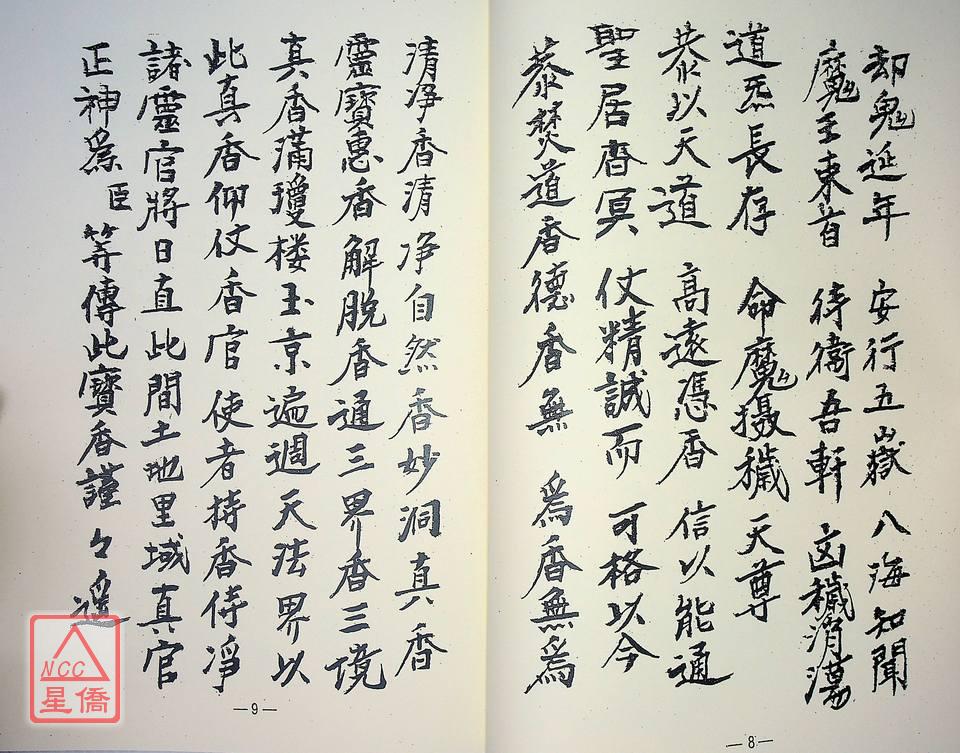 却鬼延年 安行五嶽 八海知聞
魔王束首 侍衛吾軒 凶穢消蕩
道炁長存 命魔攝穢天尊
恭以天道 高遠憑香 信以能通
聖居杳冥 仗精誠而 可格以今
恭焚道香德香無 為香無為
—8—
清净香清净自然香妙洞真香
靈寶惠香解脱香通三界香三境
真香滿瓊楼玉京遍週天法界以
此真香仰仗香官使者持香侍净
諸靈官將日直此間土地里域真官
正神為臣等傳此寶香謹々遥
—9—
NCC
星僑